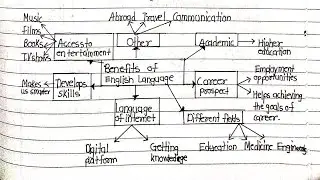 Music
Abroad Travel Communication
Films
Books
Access to
entertainment
Other
Academic
Higher
education
TV shows
Benefits of
English Language
Employment
opportunities
Makes
us smarter
Develops
skills
Career
prospect
Helps achieving
the goals of
career.
Language
of internet
Different fields
Digital
platform
Getting
knowledge
Education
Medicine
Engineering